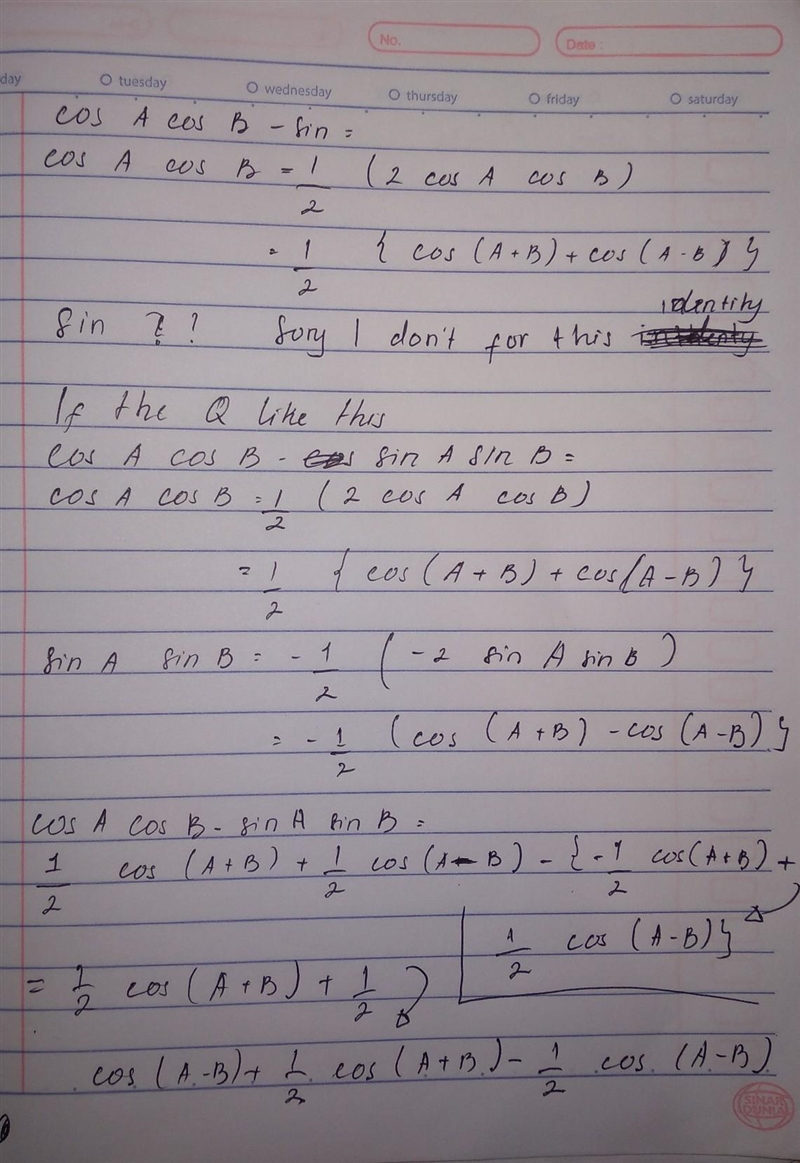 No. Date :
day tuesday wednesday thursday friday saturday
cos A cos B - sin =
cos A cos B = 1/2 (2 cos A cos B)
= 1/2 { cos (A+B) + cos (A-B) }
sin ? ! Sory I don't for this identity
If the Q like this
cos A cos B - sin A sin B =
cos A cos B = 1/2 (2 cos A cos B)
= 1/2 { cos (A+B) + cos (A-B) }
sin A sin B = - 1/2 (-2 sin A sin B)
= - 1/2 (cos (A+B) - cos (A-B) }
cos A cos B - sin A sin B =
1/2 cos (A+B) + 1/2 cos (A-B) - { - 1/2 cos (A+B) +
1/2 cos (A-B) }
= 1/2 cos (A+B) + 1/2
cos (A-B) + 1/2 cos (A+B) - 1/2 cos (A-B)
SINAR
DUNIA